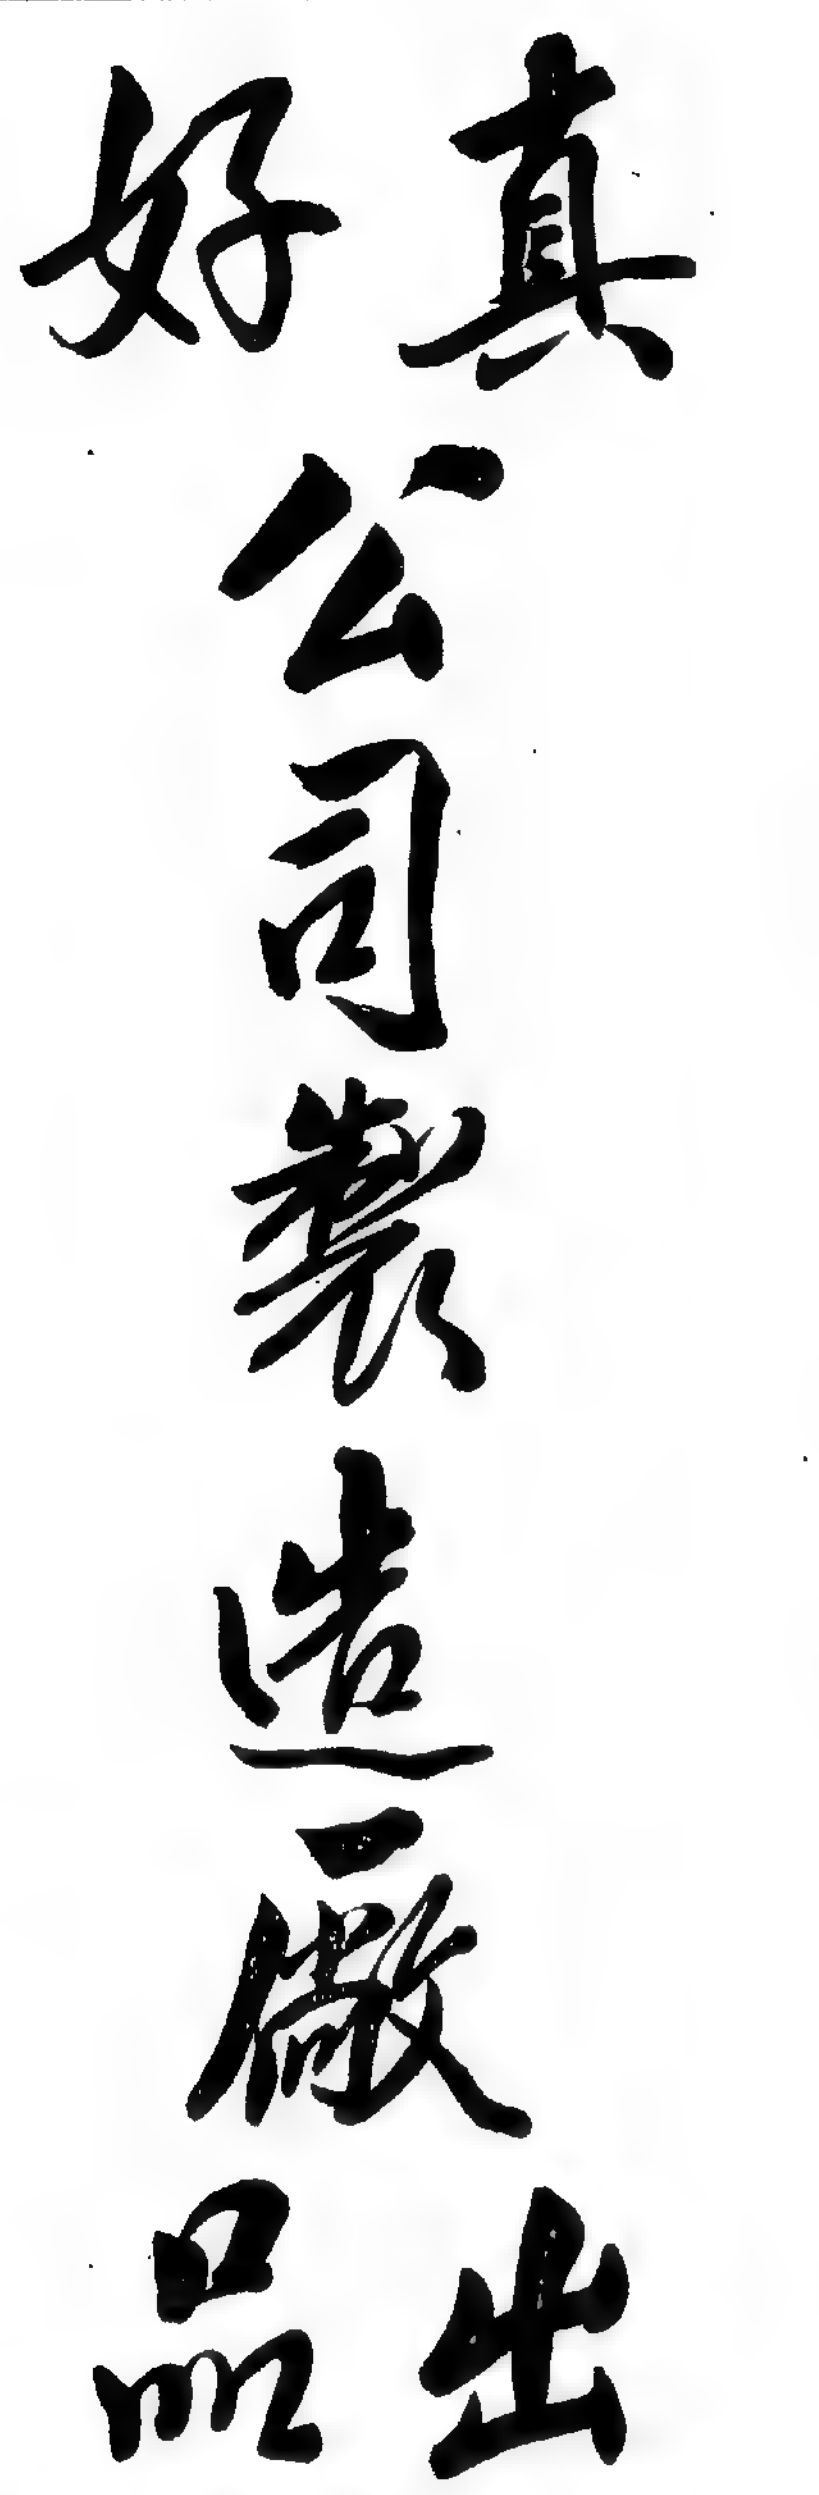 真好
公
司
製
造
廠
出品